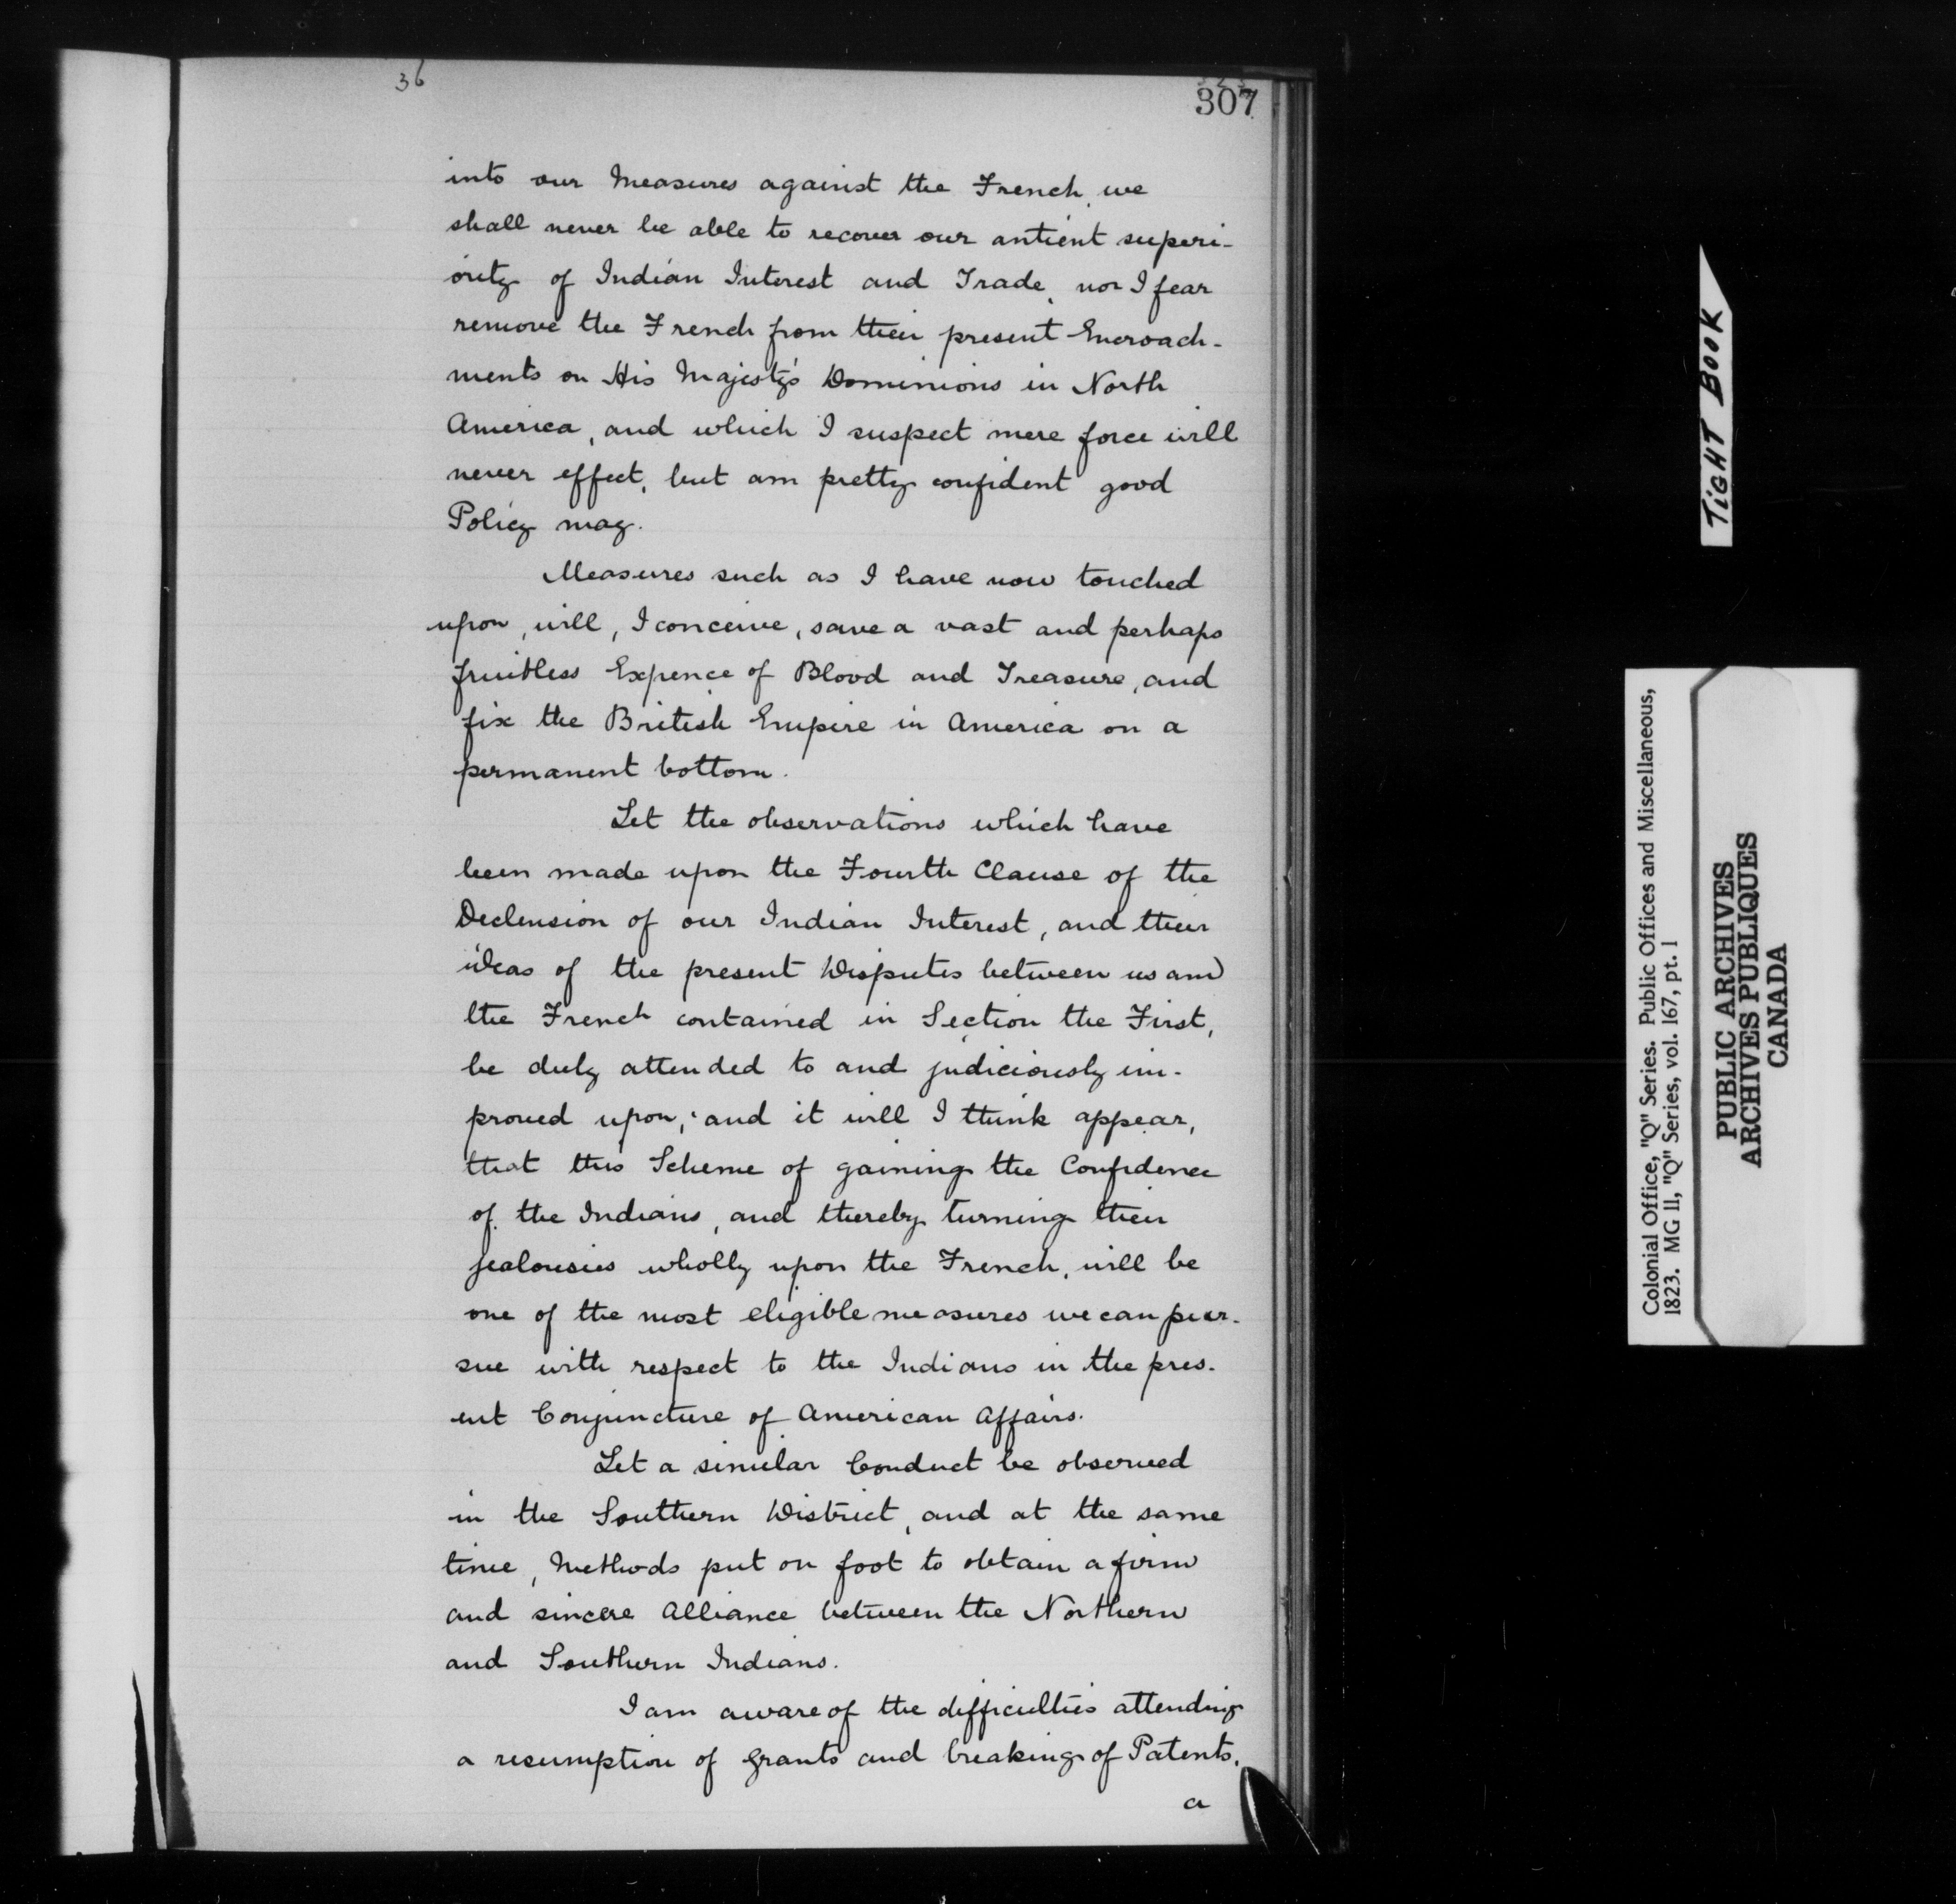 36
307
into our Measures against the French, we
shall never be able to recover our antient superi-
ority of Indian Interest and Trade, nor I fear
remove the French from their present Encroach-
ments on His Majesty's Dominions in North
America, and which I suspect mere force will
never effect, but am pretty confident good
Policy may.
Measures such as I have now touched
upon, will, I conceive, save a vast and perhaps
fruitless Expence of Blood and Treasure, and
fix the British Empire in America on a
permanent bottom.
Let the observations which have
been made upon the Fourth Clause of the
Declension of our Indian Interest, and their
ideas of the present Disputes between us and
the French contained in Section the First,
be duly attended to and judiciously im-
proved upon, and it will I think appear,
that this Scheme of gaining the Confidence
of the Indians, and thereby turning their
jealousies wholly upon the French, will be
one of the most eligible measures we can pur-
sue with respect to the Indians in the pres-
ent Conjuncture of American Affairs.
Let a similar Conduct be observed
in the Southern District, and at the same
time, Methods put on foot to obtain a firm
and sincere Alliance between the Northern
and Southern Indians.
I am aware of the difficulties attending
a resumption of grants and breaking of Patents.
a
TIGHT BOOK
Colonial Office, "Q" Series. Public Offices and Miscellaneous,
1823. MG 11, "Q" Series, vol. 167, pt. 1
PUBLIC ARCHIVES
ARCHIVES PUBLIQUES
CANADA